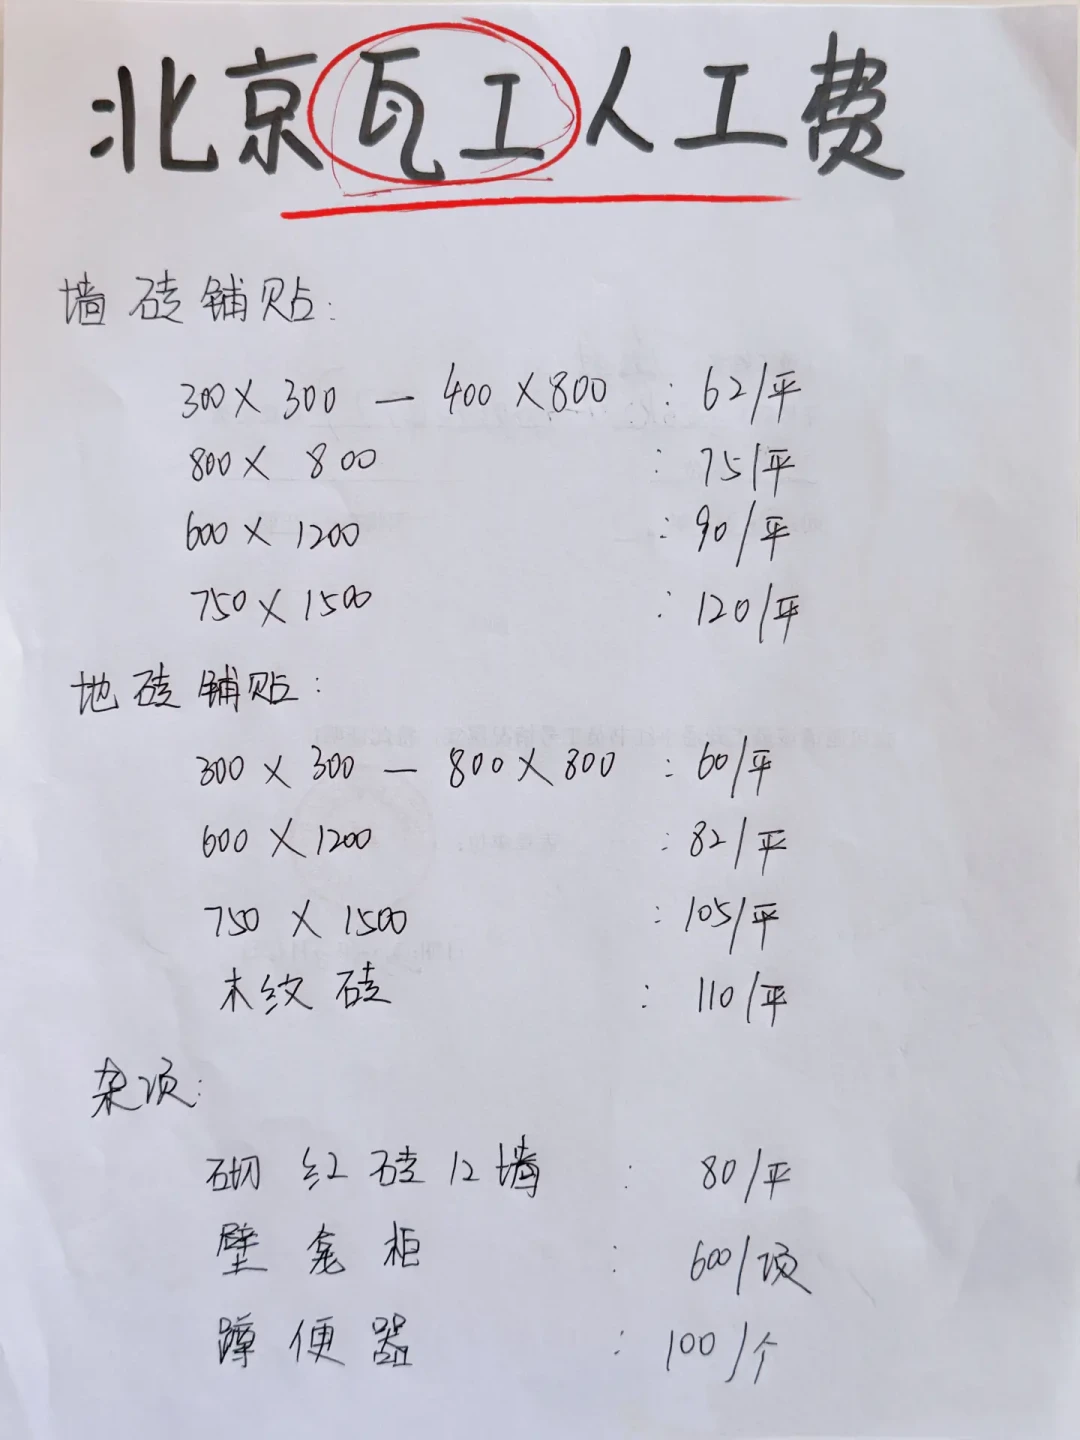 北京瓦工人工费
墙砖铺贴:
300×300—400×800:62/平
800×800:75/平
600×1200:90/平
750×1500:120/平
地砖铺贴:
300×300—800×800:60/平
600×1200:82/平
750×1500:105/平
木纹砖:110/平
杂项:
砌红砖12墙:80/平
壁龛柜:600/项
蹲便器:100/个